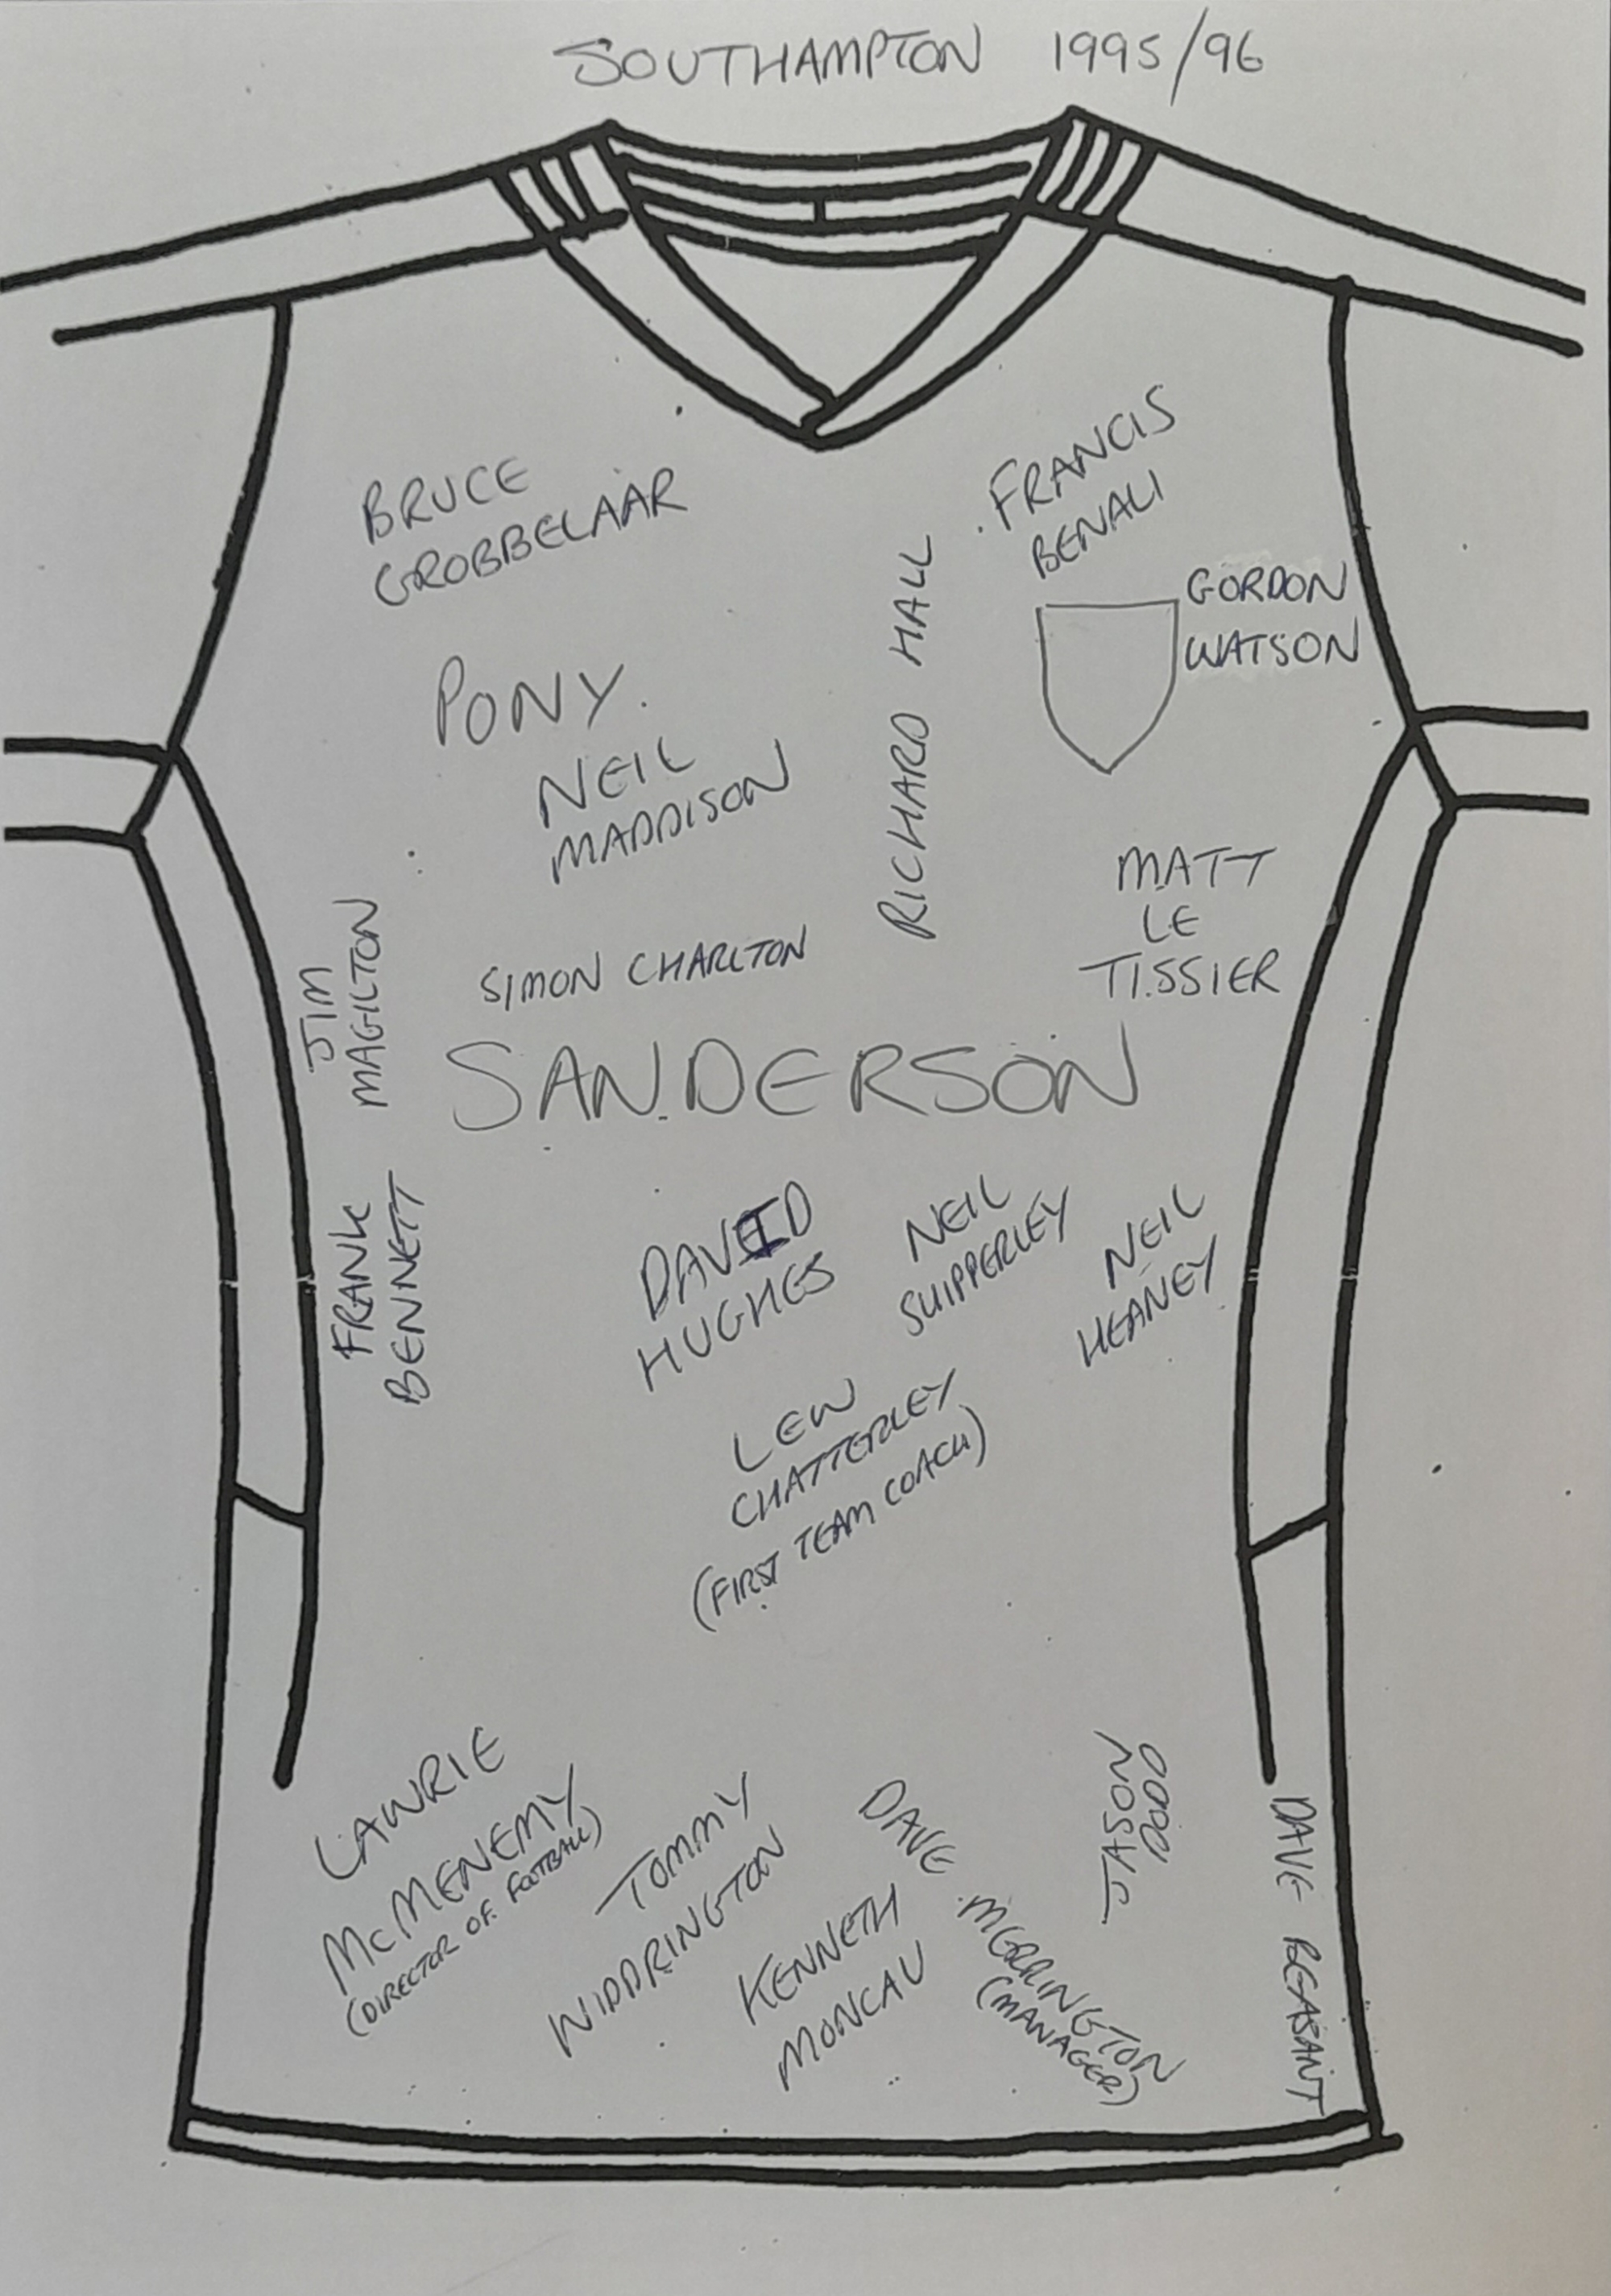 SOUTHAMPTON 1995/96
BRUCE
GROBBELAAR
FRANCIS
BENALI
RICHARD HALL
GORDON
WATSON
PONY
NEIL
MADDISON
MATT
LE
TISSIER
JIM
MAGILTON
SIMON CHARLTON
SANDERSON
FRANK
BENNETT
DAVID
HUGHES
NEIL
SHIPPERLEY
NEIL
HEANEY
LEW
CHATTERLEY
(FIRST TEAM COACH)
LAWRIE
McMENEMY
(DIRECTOR OF FOOTBALL)
TOMMY
WIDDRINGTON
KENNETH
MONCAU
DAVE MERRINGTON
(MANAGER)
JASON
DODD
DAVE BEASANT